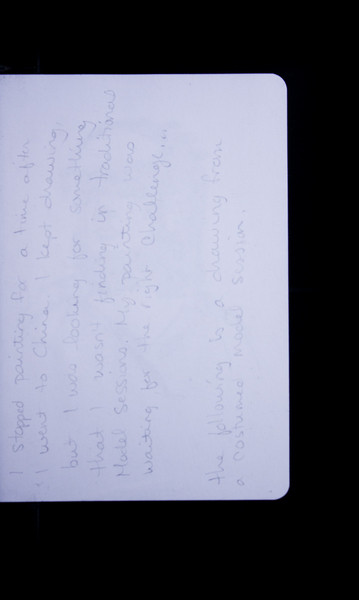 I stopped painting for a time after
I went to China. I kept drawing,
but I was looking for something
that I wasn't finding in traditional
Model Sessions. My painting was
waiting for the right Challenge...
the following is a drawing from
a costumed model session.